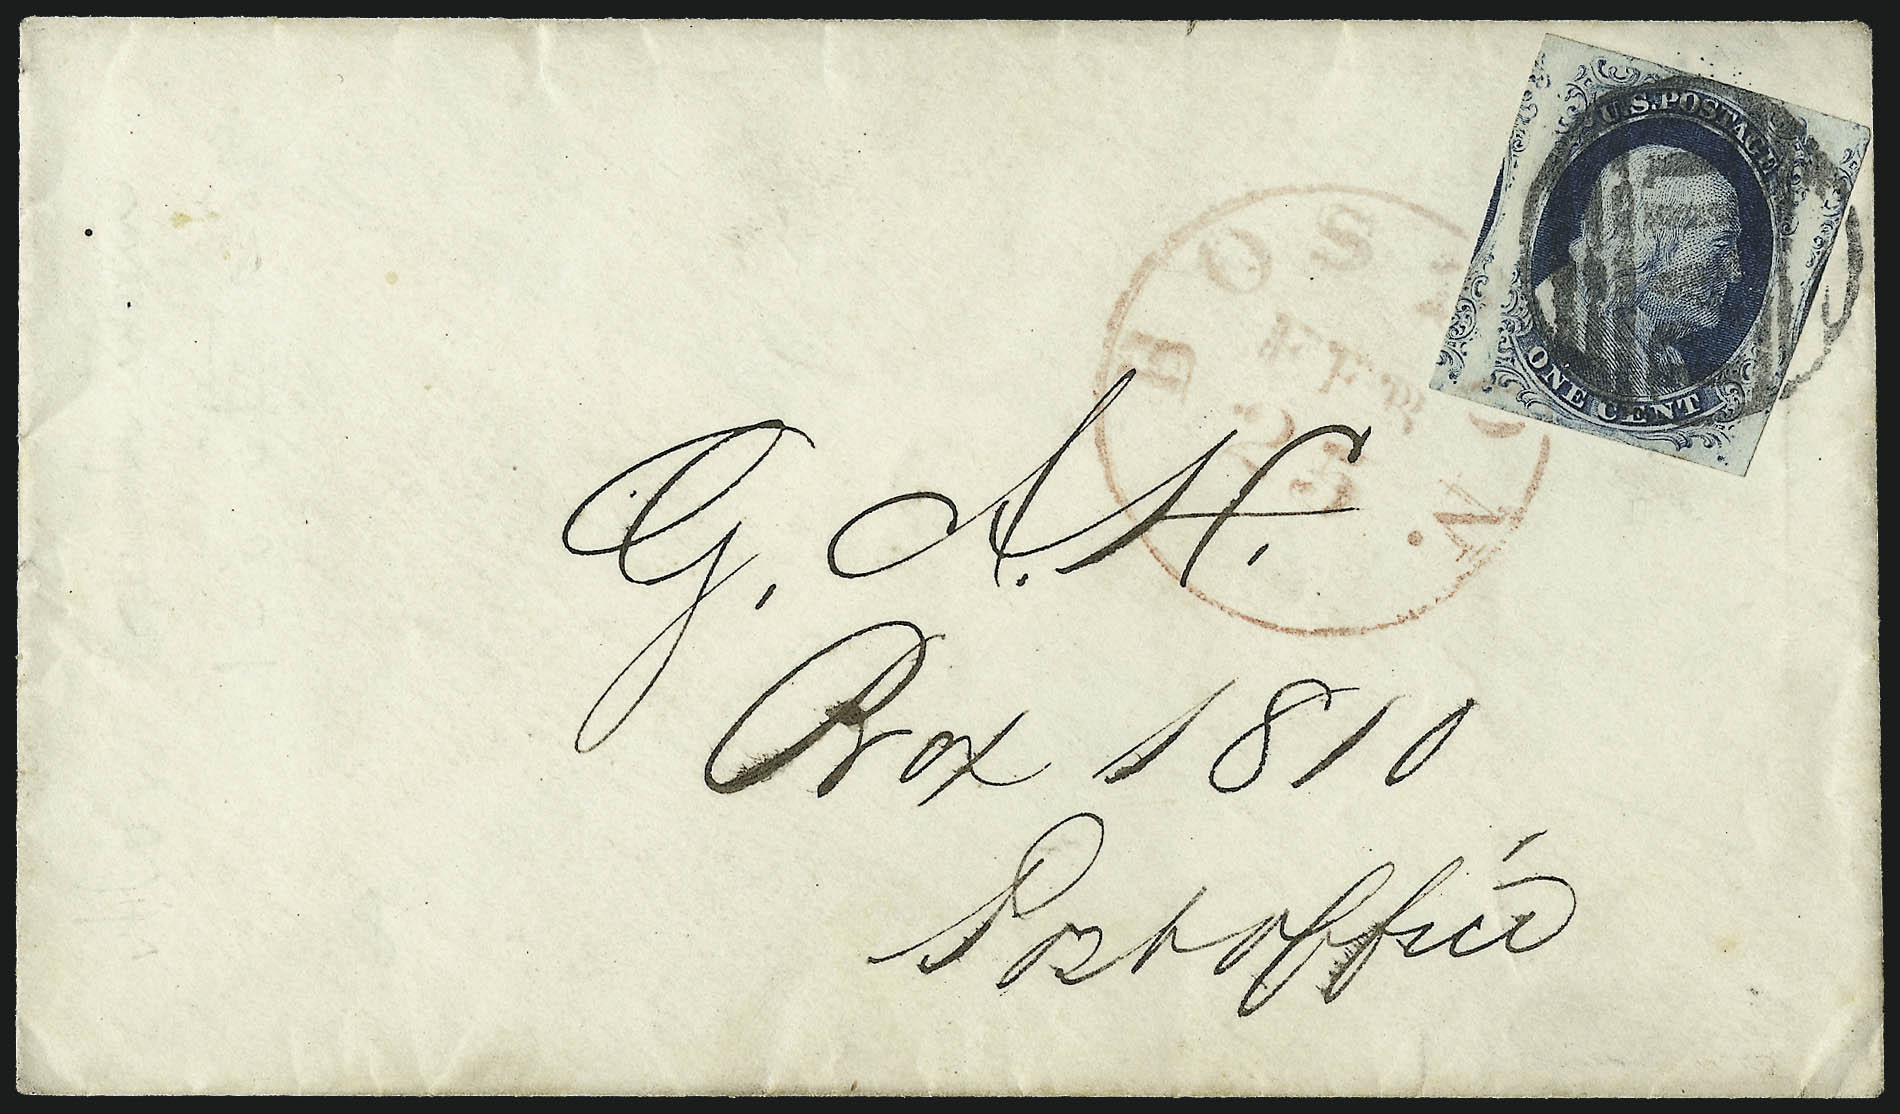 U.S. POSTAGE
ONE CENT
BOSTON.
FEB
25
G. A. H.
Box 1810
Postoffice